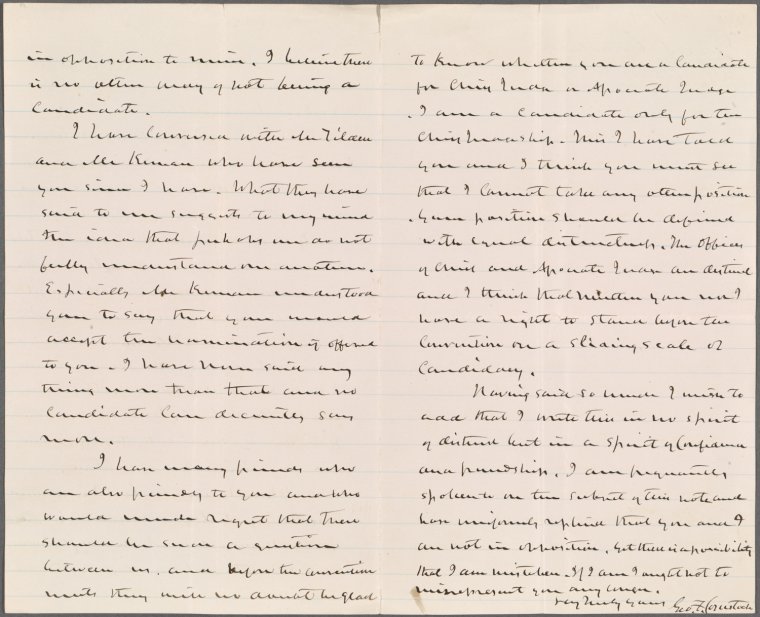 in opposition to mine. I believe there
is no other way of not being a
Candidate.
I have conversed with Mr Tilden
and Mr Kernan who have seen
you since I have. What they have
said to me suggests to my mind
the idea that perhaps we do not
fully understand one another.
Especially Mr Kernan understood
you to say that you would
accept the nomination if offered
to you. I have never said any
thing more than that and no
Candidate can decently say
more.
I have many friends who
are also friends to you and who
would much regret that there
should be such a question
between us, and before the convention
meets they will no doubt be glad
to know whether you are a Candidate
for Chief Judge or Associate Judge
. I am a Candidate only for the
Chief Judgeship. This I have told
you and I think you must see
that I cannot take any other position
. Your position should be defined
with equal distinctness. The Offices
of Chief and Associate Judge are distinct
and I think that neither you nor I
have a right to stand before the
Convention on a sliding scale of
Candidacy.
Having said so much I wish to
add that I write this in no spirit
of distrust but in a spirit of Confidence
and friendship. I am frequently
spoken to on the subject of this note and
have uniformly replied that you and I
are not in opposition. Yet there is a possibility
that I am mistaken. If I am I ought not to
misrepresent you any longer.
Very truly yours Geo. F. Comstock